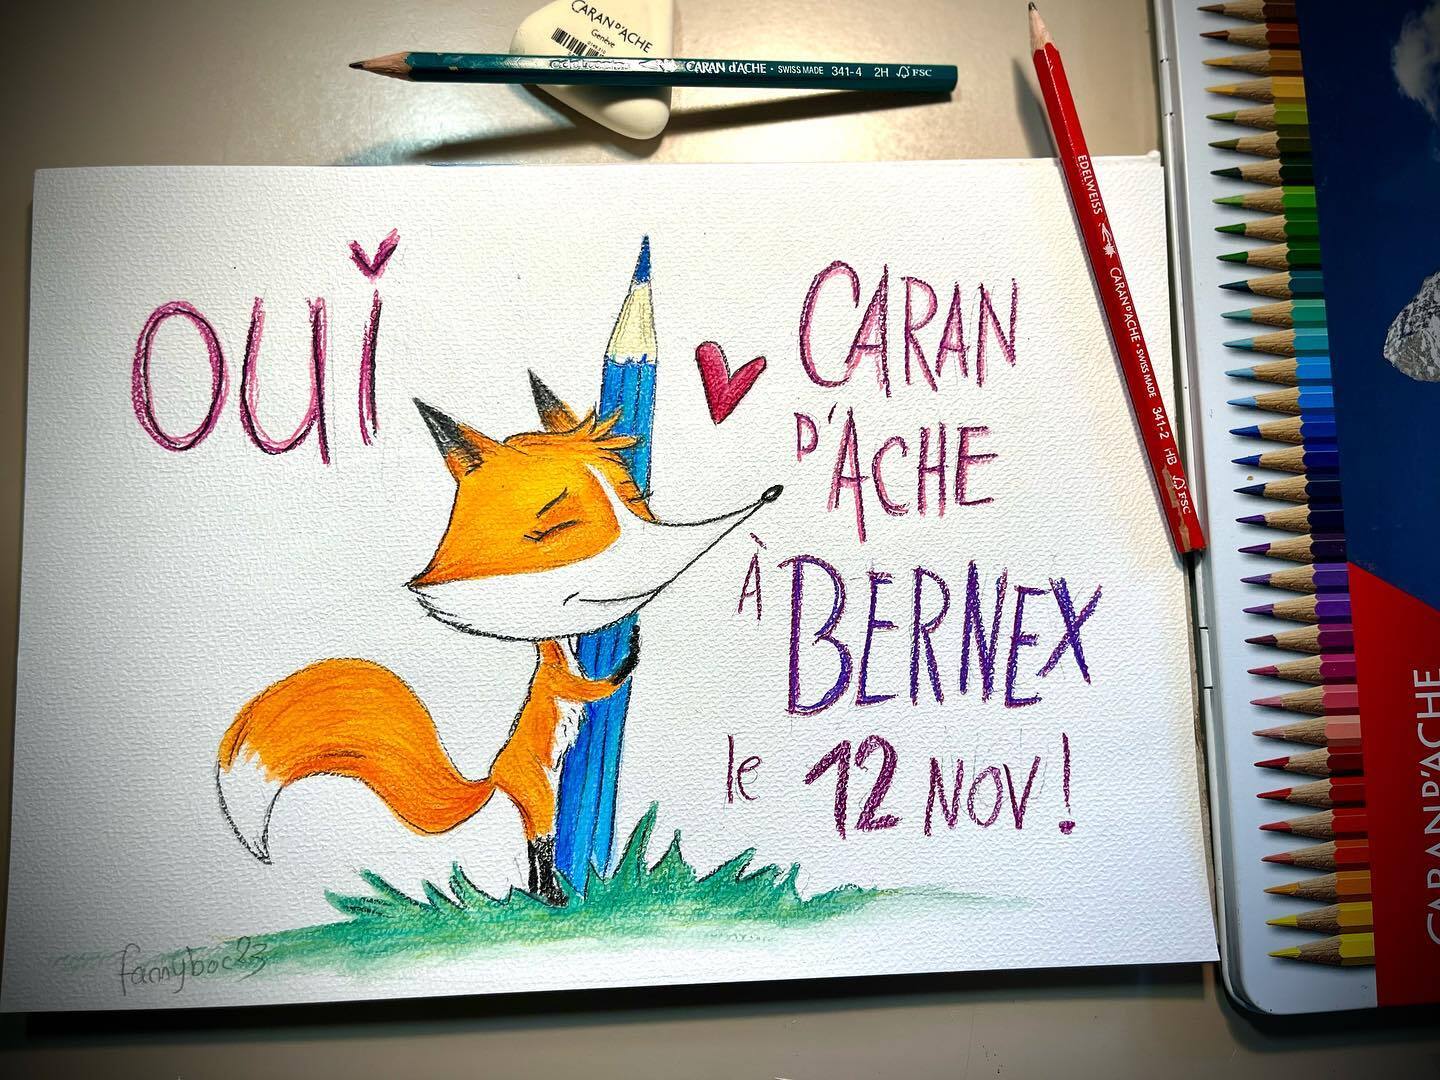 CARAN D'ACHE
Genève
CARAN d'ACHE · SWISS MADE 341-4 2H FSC
EDELWEISS CARAN D'ACHE · SWISS MADE 341-2 HB FSC
OUi
CARAN
D'ACHE
À BERNEX
le 12 NOV!
fannyboc23
CARAN D'ACHE